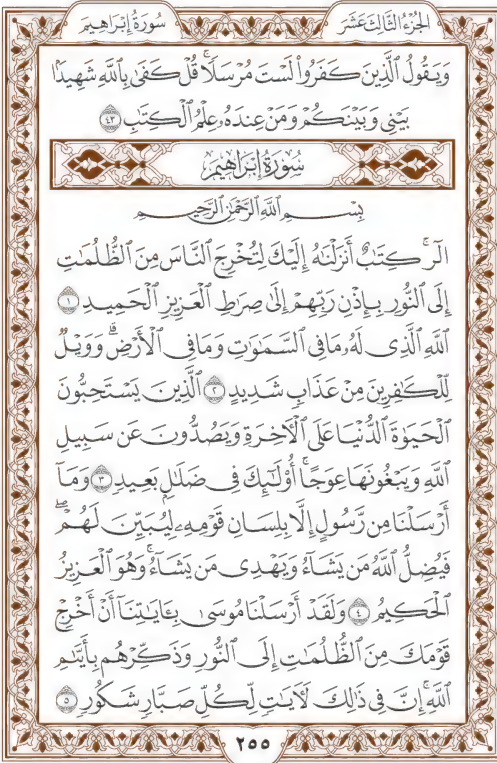 الجزء الثالث عشر
سورة إبراهيم
وَيَقُولُ ٱلَّذِينَ كَفَرُواْ لَسْتَ مُرْسَلًاۚ قُلْ كَفَىٰ بِٱللَّهِ شَهِيدًۢا
بَيْنِي وَبَيْنَكُمْ وَمَنْ عِندَهُۥ عِلْمُ ٱلْكِتَٰبِ ٤٣
سُورَةُ إِبْرَاهِيمَ
بِسْمِ ٱللَّهِ ٱلرَّحْمَٰنِ ٱلرَّحِيمِ
الٓرۚ كِتَٰبٌ أَنزَلْنَٰهُ إِلَيْكَ لِتُخْرِجَ ٱلنَّاسَ مِنَ ٱلظُّلُمَٰتِ
إِلَى ٱلنُّورِ بِإِذْنِ رَبِّهِمْ إِلَىٰ صِرَٰطِ ٱلْعَزِيزِ ٱلْحَمِيدِ ١
ٱللَّهِ ٱلَّذِي لَهُۥ مَا فِي ٱلسَّمَٰوَٰتِ وَمَا فِي ٱلْأَرْضِۗ وَوَيْلٌ
لِّلْكَٰفِرِينَ مِنْ عَذَابٍ شَدِيدٍ ٢ ٱلَّذِينَ يَسْتَحِبُّونَ
ٱلْحَيَوٰةَ ٱلدُّنْيَا عَلَى ٱلْأٓخِرَةِ وَيَصُدُّونَ عَن سَبِيلِ
ٱللَّهِ وَيَبْغُونَهَا عِوَجًاۚ أُوْلَٰٓئِكَ فِي ضَلَٰلِۭ بَعِيدٍ ٣ وَمَآ
أَرْسَلْنَا مِن رَّسُولٍ إِلَّا بِلِسَانِ قَوْمِهِۦ لِيُبَيِّنَ لَهُمْۖ
فَيُضِلُّ ٱللَّهُ مَن يَشَآءُ وَيَهْدِي مَن يَشَآءُۚ وَهُوَ ٱلْعَزِيزُ
ٱلْحَكِيمُ ٤ وَلَقَدْ أَرْسَلْنَا مُوسَىٰ بِـَٔايَٰتِنَآ أَنْ أَخْرِجْ
قَوْمَكَ مِنَ ٱلظُّلُمَٰتِ إِلَى ٱلنُّورِ وَذَكِّرْهُم بِأَيَّىٰمِ
ٱللَّهِۚ إِنَّ فِي ذَٰلِكَ لَأٓيَٰتٍ لِّكُلِّ صَبَّارٍ شَكُورٍ ٥
٢٥٥